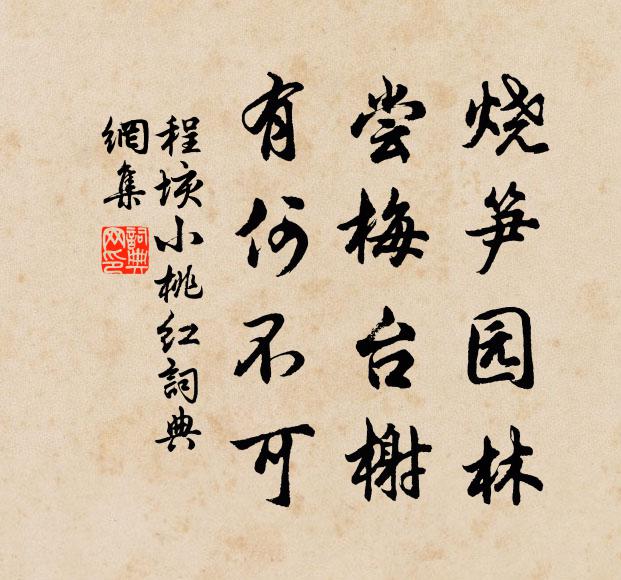 烧笋园林
尝梅台榭
有何不可
程垓小桃红词典
網集
詞典网印